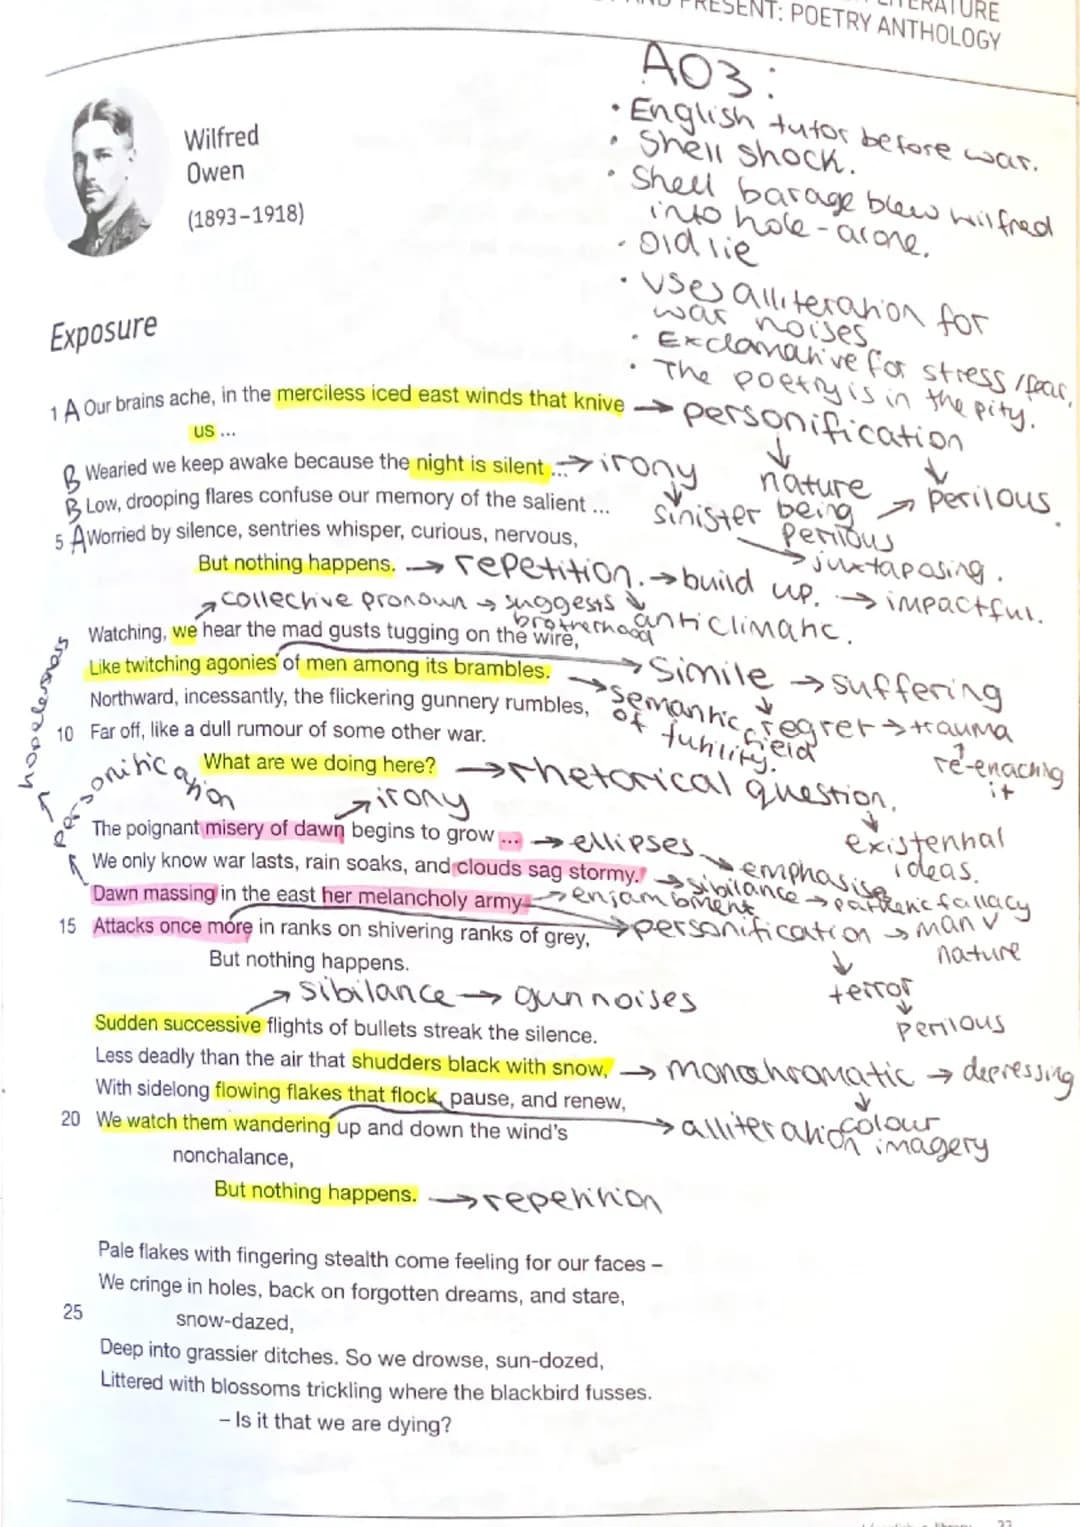 LITERATURE
PRESENT: POETRY ANTHOLOGY
Wilfred
Owen
(1893-1918)
AO3:
• English tutor before war.
• Shell shock.
• Shell barage blew wilfred
into hole - alone.
• Old lie
• Uses alliteration for
war noises
• Exclamative for stress / fear.
• The poetry is in the pity.
Exposure
1 A Our brains ache, in the merciless iced east winds that knive → personification
us ...
B Wearied we keep awake because the night is silent ... → irony
nature → perilous.
B Low, drooping flares confuse our memory of the salient ...
sinister being
perilous
5 A Worried by silence, sentries whisper, curious, nervous,
→ juxtaposing.
But nothing happens. → repetition. → build up. → impactful.
collective pronoun → suggests
brotherhood
anticlimatic.
Watching, we hear the mad gusts tugging on the wire,
Like twitching agonies of men among its brambles.
→ Simile → suffering
Northward, incessantly, the flickering gunnery rumbles,
→ semantic field
of futility.
regret → trauma
10 Far off, like a dull rumour of some other war.
re-enacting
it
What are we doing here? → rhetorical question.
hopelessness
personification
irony
existential
ideas.
The poignant misery of dawn begins to grow ... → ellipses
→ emphasise
We only know war lasts, rain soaks, and clouds sag stormy. → sibilance → pathetic fallacy
Dawn massing in the east her melancholy army → enjambment
15 Attacks once more in ranks on shivering ranks of grey,
→ personification → man v
nature
But nothing happens.
terror
perilous
sibilance → gun noises
Sudden successive flights of bullets streak the silence.
Less deadly than the air that shudders black with snow, → monochromatic → depressing
With sidelong flowing flakes that flock, pause, and renew,
colour
imagery
20 We watch them wandering up and down the wind's → alliteration
nonchalance,
But nothing happens. → repetition
Pale flakes with fingering stealth come feeling for our faces –
We cringe in holes, back on forgotten dreams, and stare,
25 snow-dazed,
Deep into grassier ditches. So we drowse, sun-dozed,
Littered with blossoms trickling where the blackbird fusses.
– Is it that we are dying?